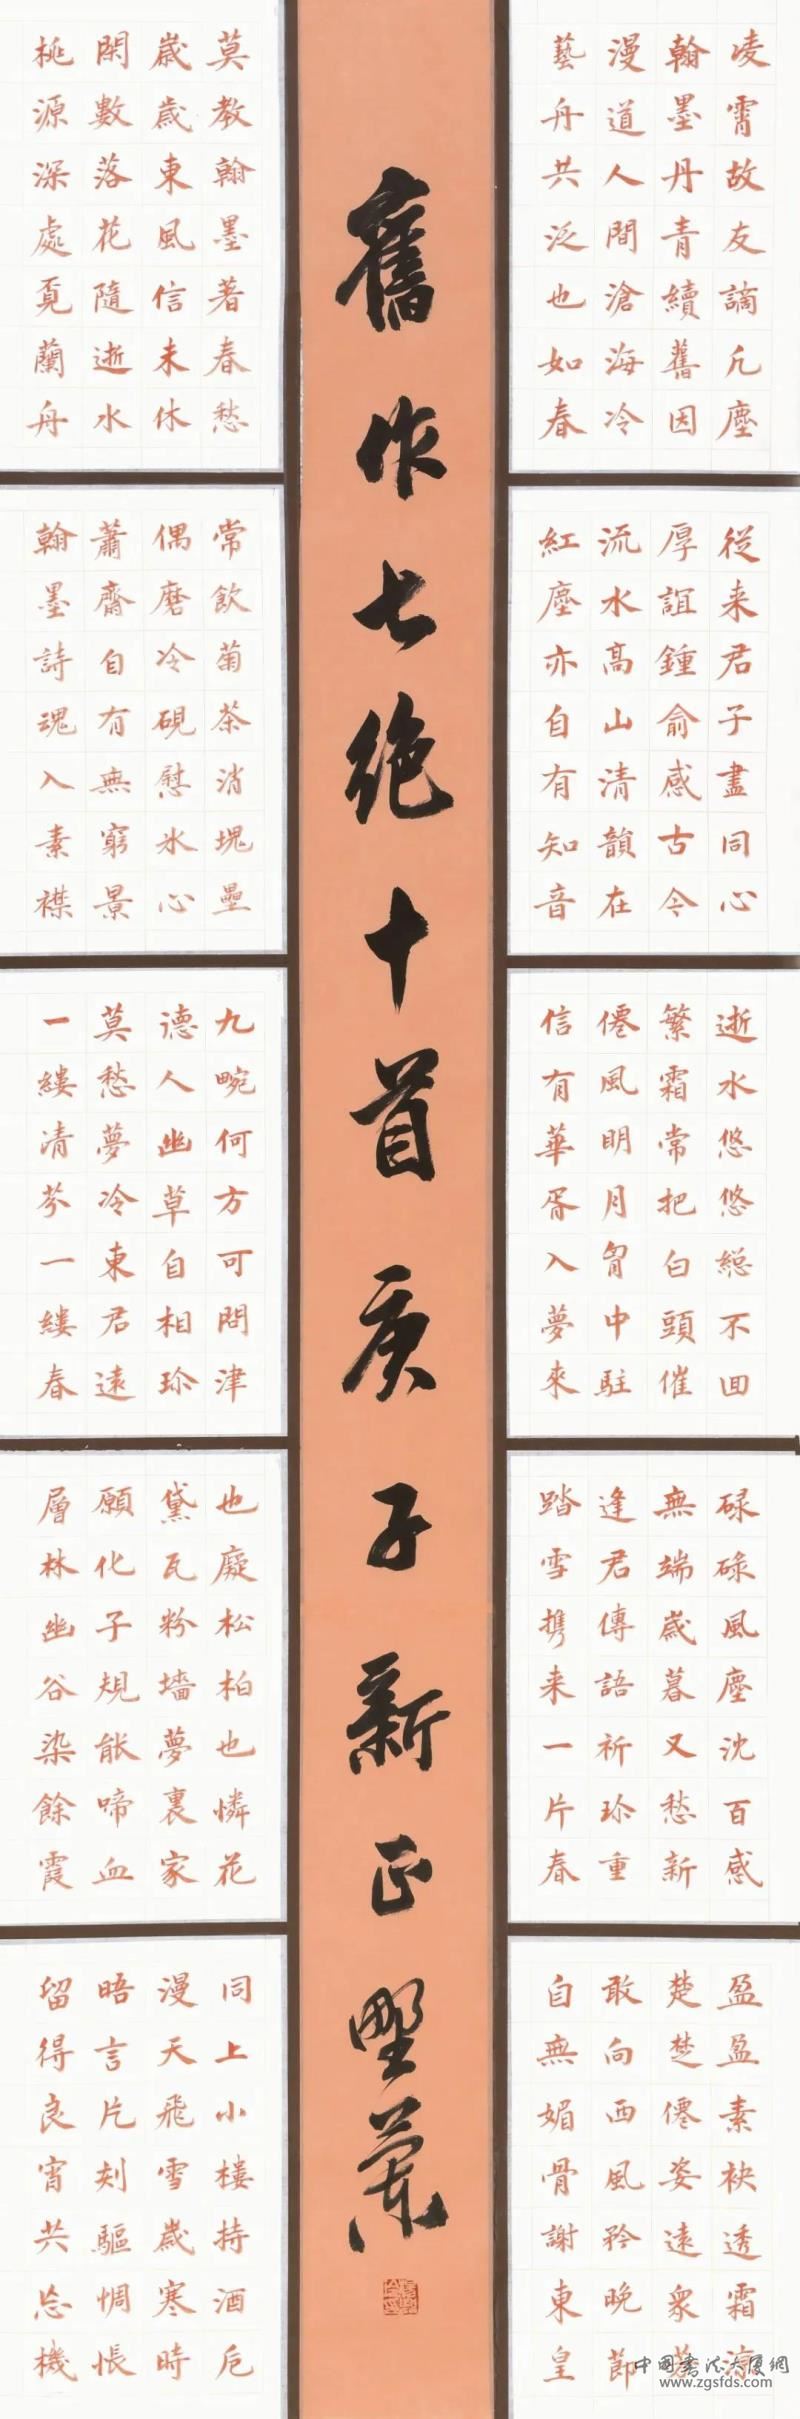 凌霄故友謫凡塵
翰墨丹青續舊因
漫道人間滄海冷
藝舟共泛也如春
從来君子盡同心
厚誼鍾俞感古今
流水高山清韻在
紅塵亦自有知音
逝水悠悠総不囬
繁霜常把白頭催
僊風明月胷中駐
信有華胥入夢來
碌碌風塵沈百感
無端歲暮又愁新
逢君傳語祈珎重
踏雪携来一片春
盈盈素袂透霜涼
楚楚僊姿遠衆芳
敢向西風矜晚節
自無媚骨謝東皇
舊作七絕十首庚子新正野
莫教翰墨著春愁
歲歲東風信未休
閑數落花隨逝水
桃源深處覓蘭舟
常飲菊茶消塊壘
偶磨冷硯慰冰心
蕭齋自有無窮景
翰墨詩魂入素襟
九畹何方可問津
德人幽草自相珎
莫愁夢冷東君遠
一縷清芬一縷春
也癡松柏也憐花
黛瓦粉墻夢裏家
願化子規能啼血
層林幽谷染餘霞
同上小樓持酒卮
漫天飛雪歲寒時
晤言片刻驅惆悵
留得良宵共忘機
中國書法大廈網
www.zgsfds.com